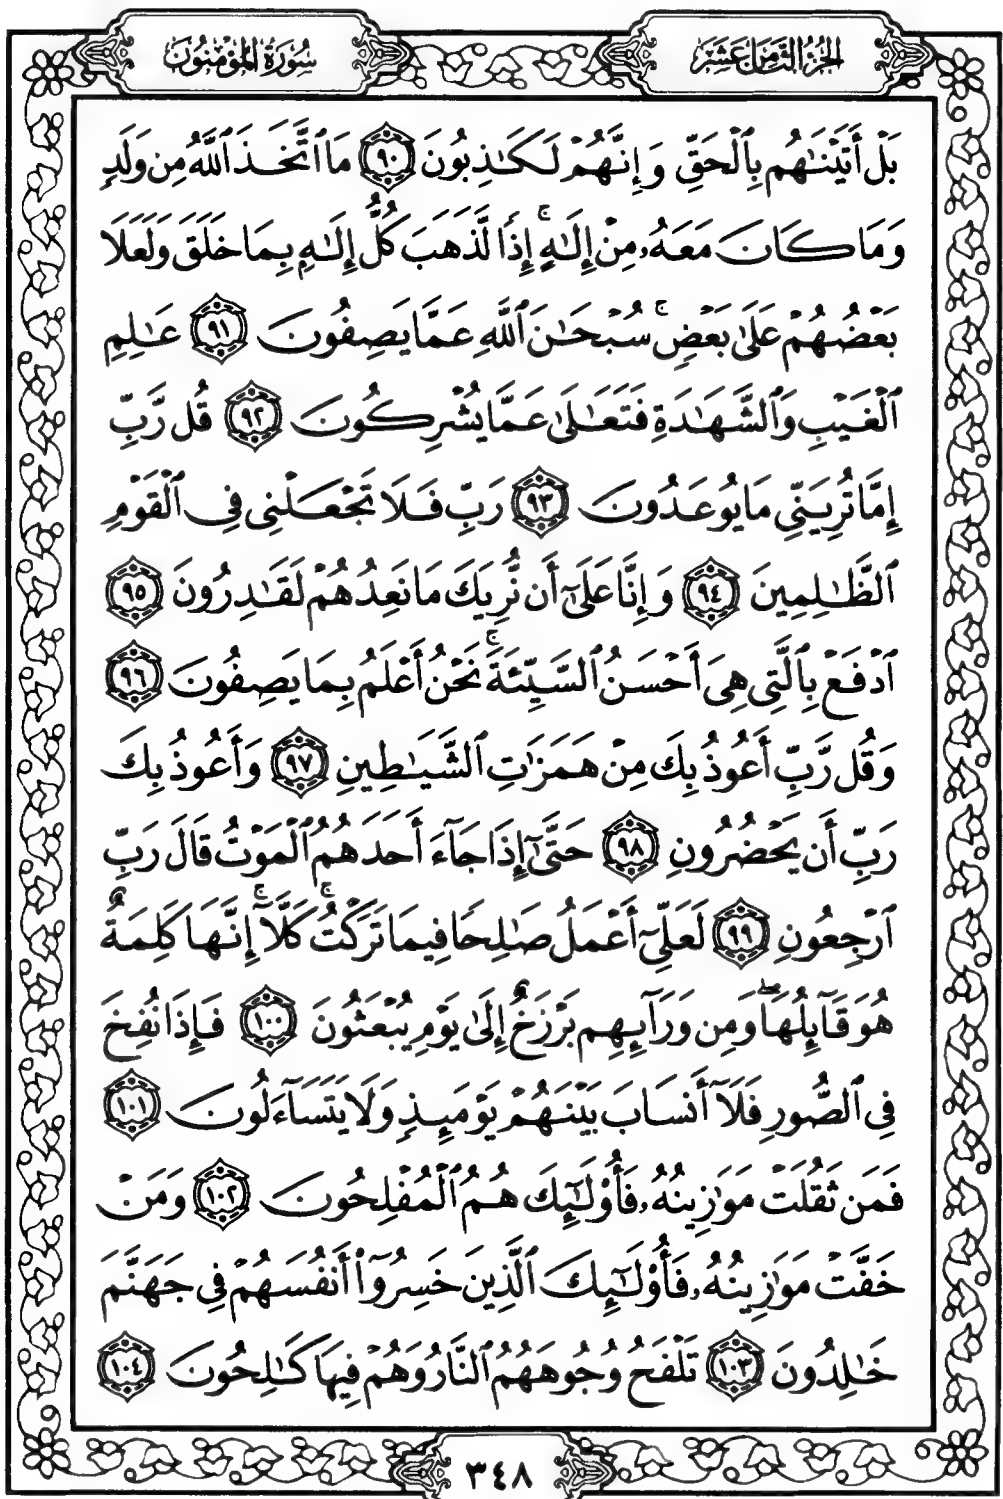 الجزء الثامن عشر
سورة المؤمنون
بَلْ أَتَيْنَٰهُم بِٱلْحَقِّ وَإِنَّهُمْ لَكَٰذِبُونَ ٩٠ مَا ٱتَّخَذَ ٱللَّهُ مِن وَلَدٍ
وَمَا كَانَ مَعَهُۥ مِنْ إِلَٰهٍ ۚ إِذًا لَّذَهَبَ كُلُّ إِلَٰهٍۭ بِمَا خَلَقَ وَلَعَلَا
بَعْضُهُمْ عَلَىٰ بَعْضٍ ۚ سُبْحَٰنَ ٱللَّهِ عَمَّا يَصِفُونَ ٩١ عَٰلِمِ
ٱلْغَيْبِ وَٱلشَّهَٰدَةِ فَتَعَٰلَىٰ عَمَّا يُشْرِكُونَ ٩٢ قُل رَّبِّ
إِمَّا تُرِيَنِّي مَا يُوعَدُونَ ٩٣ رَبِّ فَلَا تَجْعَلْنِي فِي ٱلْقَوْمِ
ٱلظَّٰلِمِينَ ٩٤ وَإِنَّا عَلَىٰٓ أَن نُّرِيَكَ مَا نَعِدُهُمْ لَقَٰدِرُونَ ٩٥
ٱدْفَعْ بِٱلَّتِي هِيَ أَحْسَنُ ٱلسَّيِّئَةَ ۚ نَحْنُ أَعْلَمُ بِمَا يَصِفُونَ ٩٦
وَقُل رَّبِّ أَعُوذُ بِكَ مِنْ هَمَزَٰتِ ٱلشَّيَٰطِينِ ٩٧ وَأَعُوذُ بِكَ
رَبِّ أَن يَحْضُرُونِ ٩٨ حَتَّىٰٓ إِذَا جَآءَ أَحَدَهُمُ ٱلْمَوْتُ قَالَ رَبِّ
ٱرْجِعُونِ ٩٩ لَعَلِّيٓ أَعْمَلُ صَٰلِحًا فِيمَا تَرَكْتُ ۚ كَلَّآ ۚ إِنَّهَا كَلِمَةٌ
هُوَ قَآئِلُهَا ۖ وَمِن وَرَآئِهِم بَرْزَخٌ إِلَىٰ يَوْمِ يُبْعَثُونَ ١٠٠ فَإِذَا نُفِخَ
فِي ٱلصُّورِ فَلَآ أَنسَابَ بَيْنَهُمْ يَوْمَئِذٍ وَلَا يَتَسَآءَلُونَ ١٠١
فَمَن ثَقُلَتْ مَوَٰزِينُهُۥ فَأُوْلَٰٓئِكَ هُمُ ٱلْمُفْلِحُونَ ١٠٢ وَمَنْ
خَفَّتْ مَوَٰزِينُهُۥ فَأُوْلَٰٓئِكَ ٱلَّذِينَ خَسِرُوٓاْ أَنفُسَهُمْ فِي جَهَنَّمَ
خَٰلِدُونَ ١٠٣ تَلْفَحُ وُجُوهَهُمُ ٱلنَّارُ وَهُمْ فِيهَا كَٰلِحُونَ ١٠٤
٣٤٨